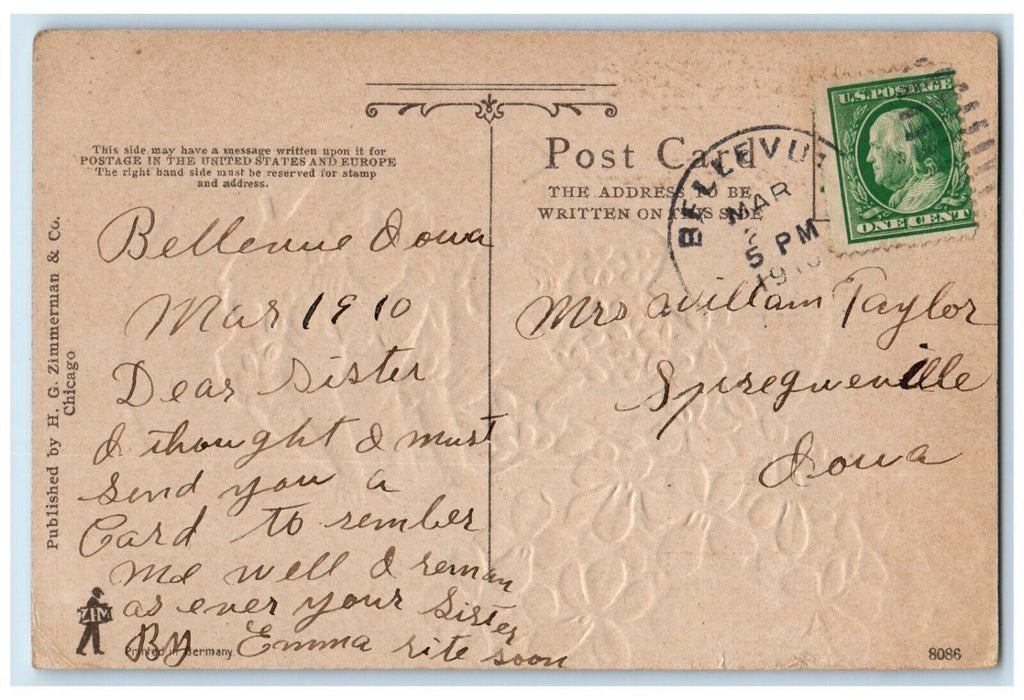 This side may have a message written upon it for
POSTAGE IN THE UNITED STATES AND EUROPE
The right hand side must be reserved for stamp
and address.
Post Card
THE ADDRESS TO BE
WRITTEN ON THIS SIDE
U.S. POSTAGE
ONE CENT
BELLEVUE
MAR
5 PM
1910
Published by H. G. Zimmerman & Co.
Chicago
Bellevue Iowa
Mar 1910
Dear Sister
I thought I must
send you a
Card to rember
me well I reman
as ever your Sister
By Emma rite soon
Mrs William Taylor
Spregueville
Iowa
ZIM
Printed in Germany
8086